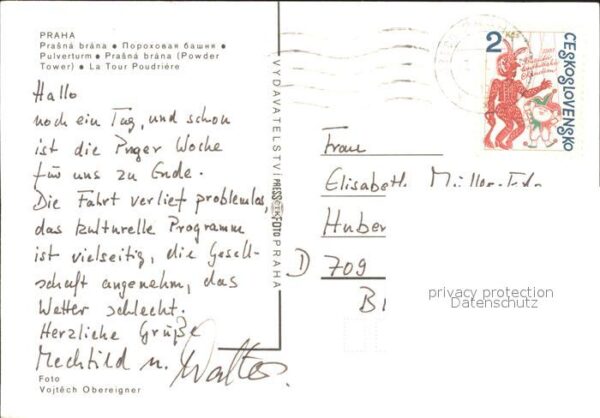 PRAHA
Prašná brána • Пороховая башня •
Pulverturm • Prašná brána (Powder
Tower) • La Tour Poudrière
Hallo
noch ein Tag, und schon
ist die Prager Woche
für uns zu Ende.
Die Fahrt verlief problemlos,
das kulturelle Programm
ist vielseitig, die Gesell-
schaft angenehm, das
Wetter schlecht.
Herzliche Grüße
Mechtild u. Walter.
Foto
Vojtěch Obereigner
VYDAVATELSTVÍ PRESSFOTO PRAHA
2
ČESKOSLOVENSKO
Frau
Elisabeth Müller
Huber
D 709
privacy protection
Datenschutz